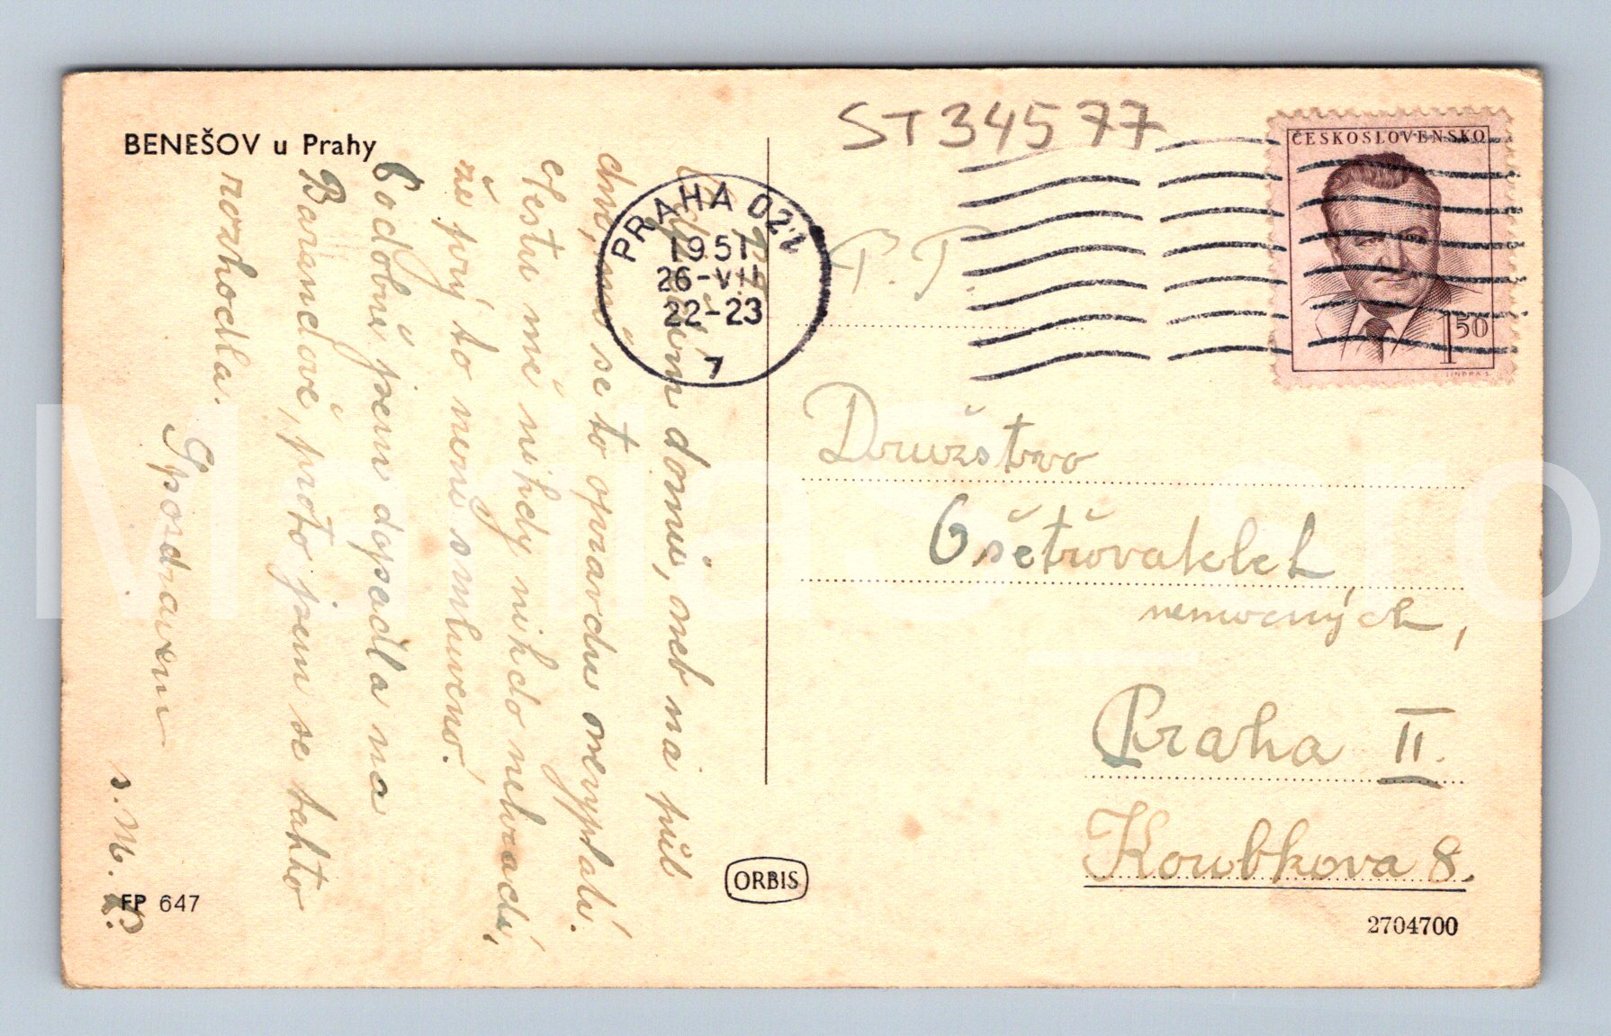 BENEŠOV u Prahy
ST34577
ČESKOSLOVENSKO
1 50
PRAHA 021
1951
26-VII
22-23
7
P. T.
Družstvo
Ošetřovatelek
nemocných,
Praha II.
Koubkova 8.
domů, neb na půl
dne, mě se to opravdu nevyplatí.
Cestu mě nikdy nikdo nehradí,
že prý to není smluveno.
Podobně jsem dopadla na
Barandově, proto jsem se takto
rozhodla.
S pozdravem
s. M. P.
FP 647
ORBIS
2704700